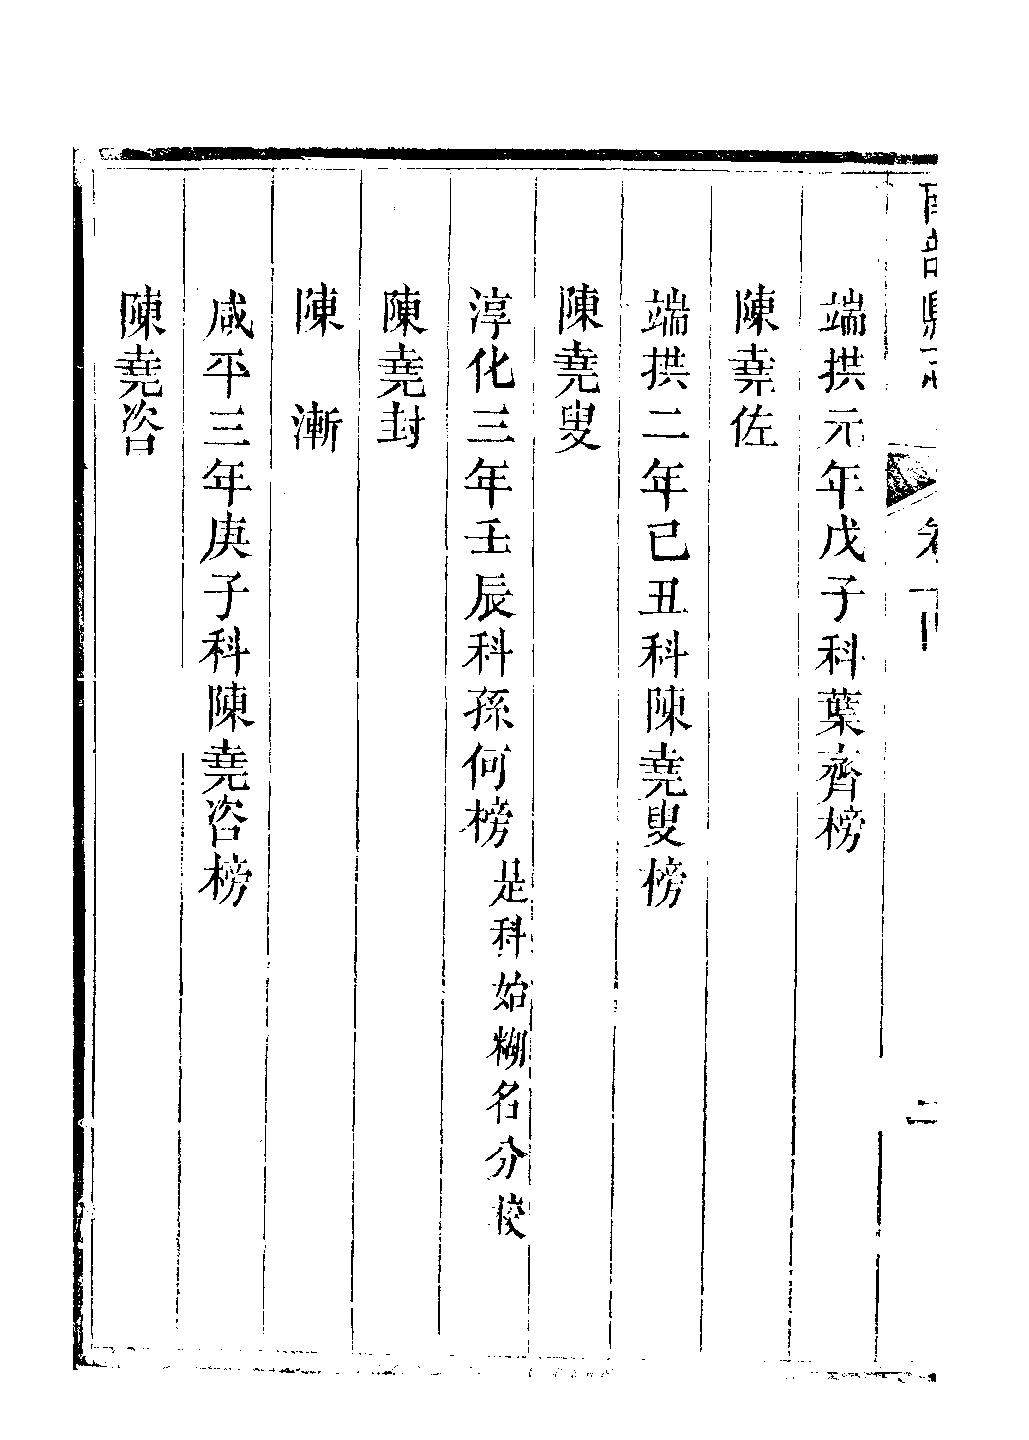 南部縣志 卷十四 二
端拱元年戊子科葉齊榜
陳堯佐
端拱二年已丑科陳堯叟榜
陳堯叟
淳化三年壬辰科孫何榜 是科始糊名分校
陳堯封
陳漸
咸平三年庚子科陳堯咨榜
陳堯咨